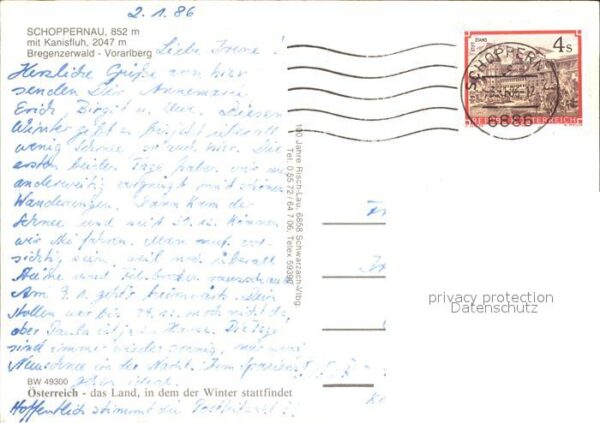 2.1.86
SCHOPPERNAU, 852 m
mit Kanisfluh, 2047 m
Bregenzerwald - Vorarlberg
Liebe Irene!
Herzliche Grüße von hier
senden Dir Annemarie
Erich Birgit u. Uwe. Diesen
Winter gibt's überall
wenig Schnee so auch hier. Die
ersten beiden Tage haben wir uns
anderweitig vergnügt mit schönen
Wanderungen. Dann kam der
Schnee und seit 31.12. können
wir Ski fahren. Man muß vor-
sichtig sein, weil noch überall
Steine und
Am 9.1. geht's heimwärts. Dein
bis noch nicht da,
aber Paula ist ja z. Hause. Die Tage
sind immer wieder sonnig, nur wenig
Neuschnee in der Nacht. Zum Spazieren
gehn ideal.
BW 49300
Österreich - das Land, in dem der Winter stattfindet
Hoffentlich stimmt die Postleitzahl!!
100 Jahre Risch-Lau, 6858 Schwarzach/Vlbg.
Tel. 0 55 72 / 64 7 06, Telex 59390
STAMS
4 S
REPUBLIK ÖSTERREICH
SCHOPPERNAU
6886
privacy protection
Datenschutz